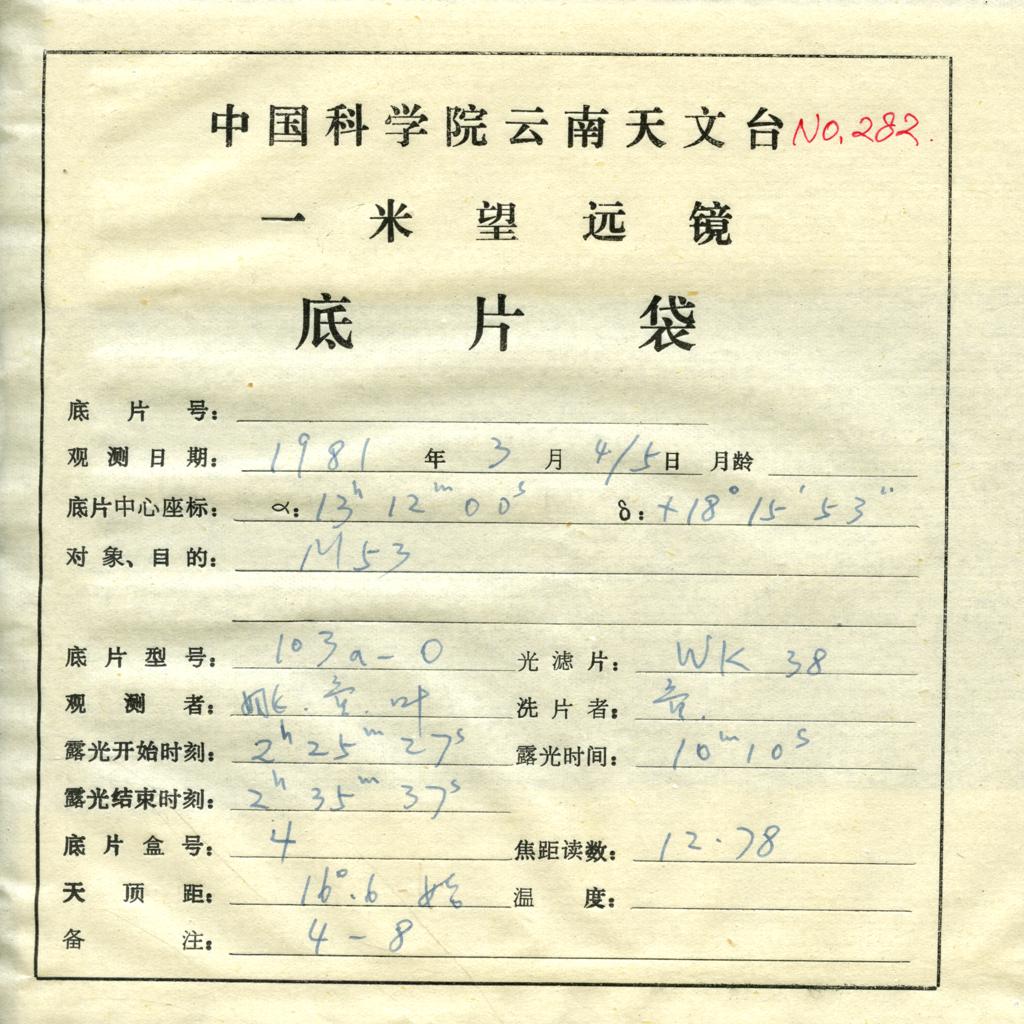 中国科学院云南天文台 NO.282.
一米望远镜
底片袋
底片号：
观测日期：1981年3月4/5日 月龄
底片中心座标：α：13ʰ 12ᵐ 00ˢ δ：+18° 15′ 53″
对象、目的：M53
底片型号：103a-O 光滤片：WK 38
观测者：叶 洗片者：
露光开始时刻：2ʰ 25ᵐ 27ˢ 露光时间：10ᵐ10ˢ
露光结束时刻：2ʰ 35ᵐ 37ˢ
底片盒号：4 焦距读数：12.78
天顶距：16°.6 始 温度：
备注：4-8